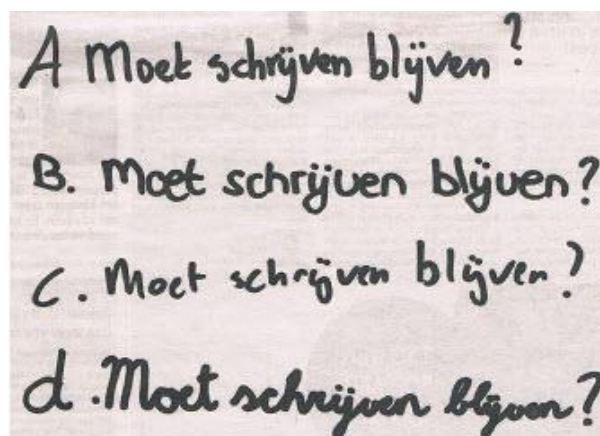 A Moet schrijven blijven?
B. Moet schrijven blijven?
C. Moet schrijven blijven?
d. Moet schrijven blijven?